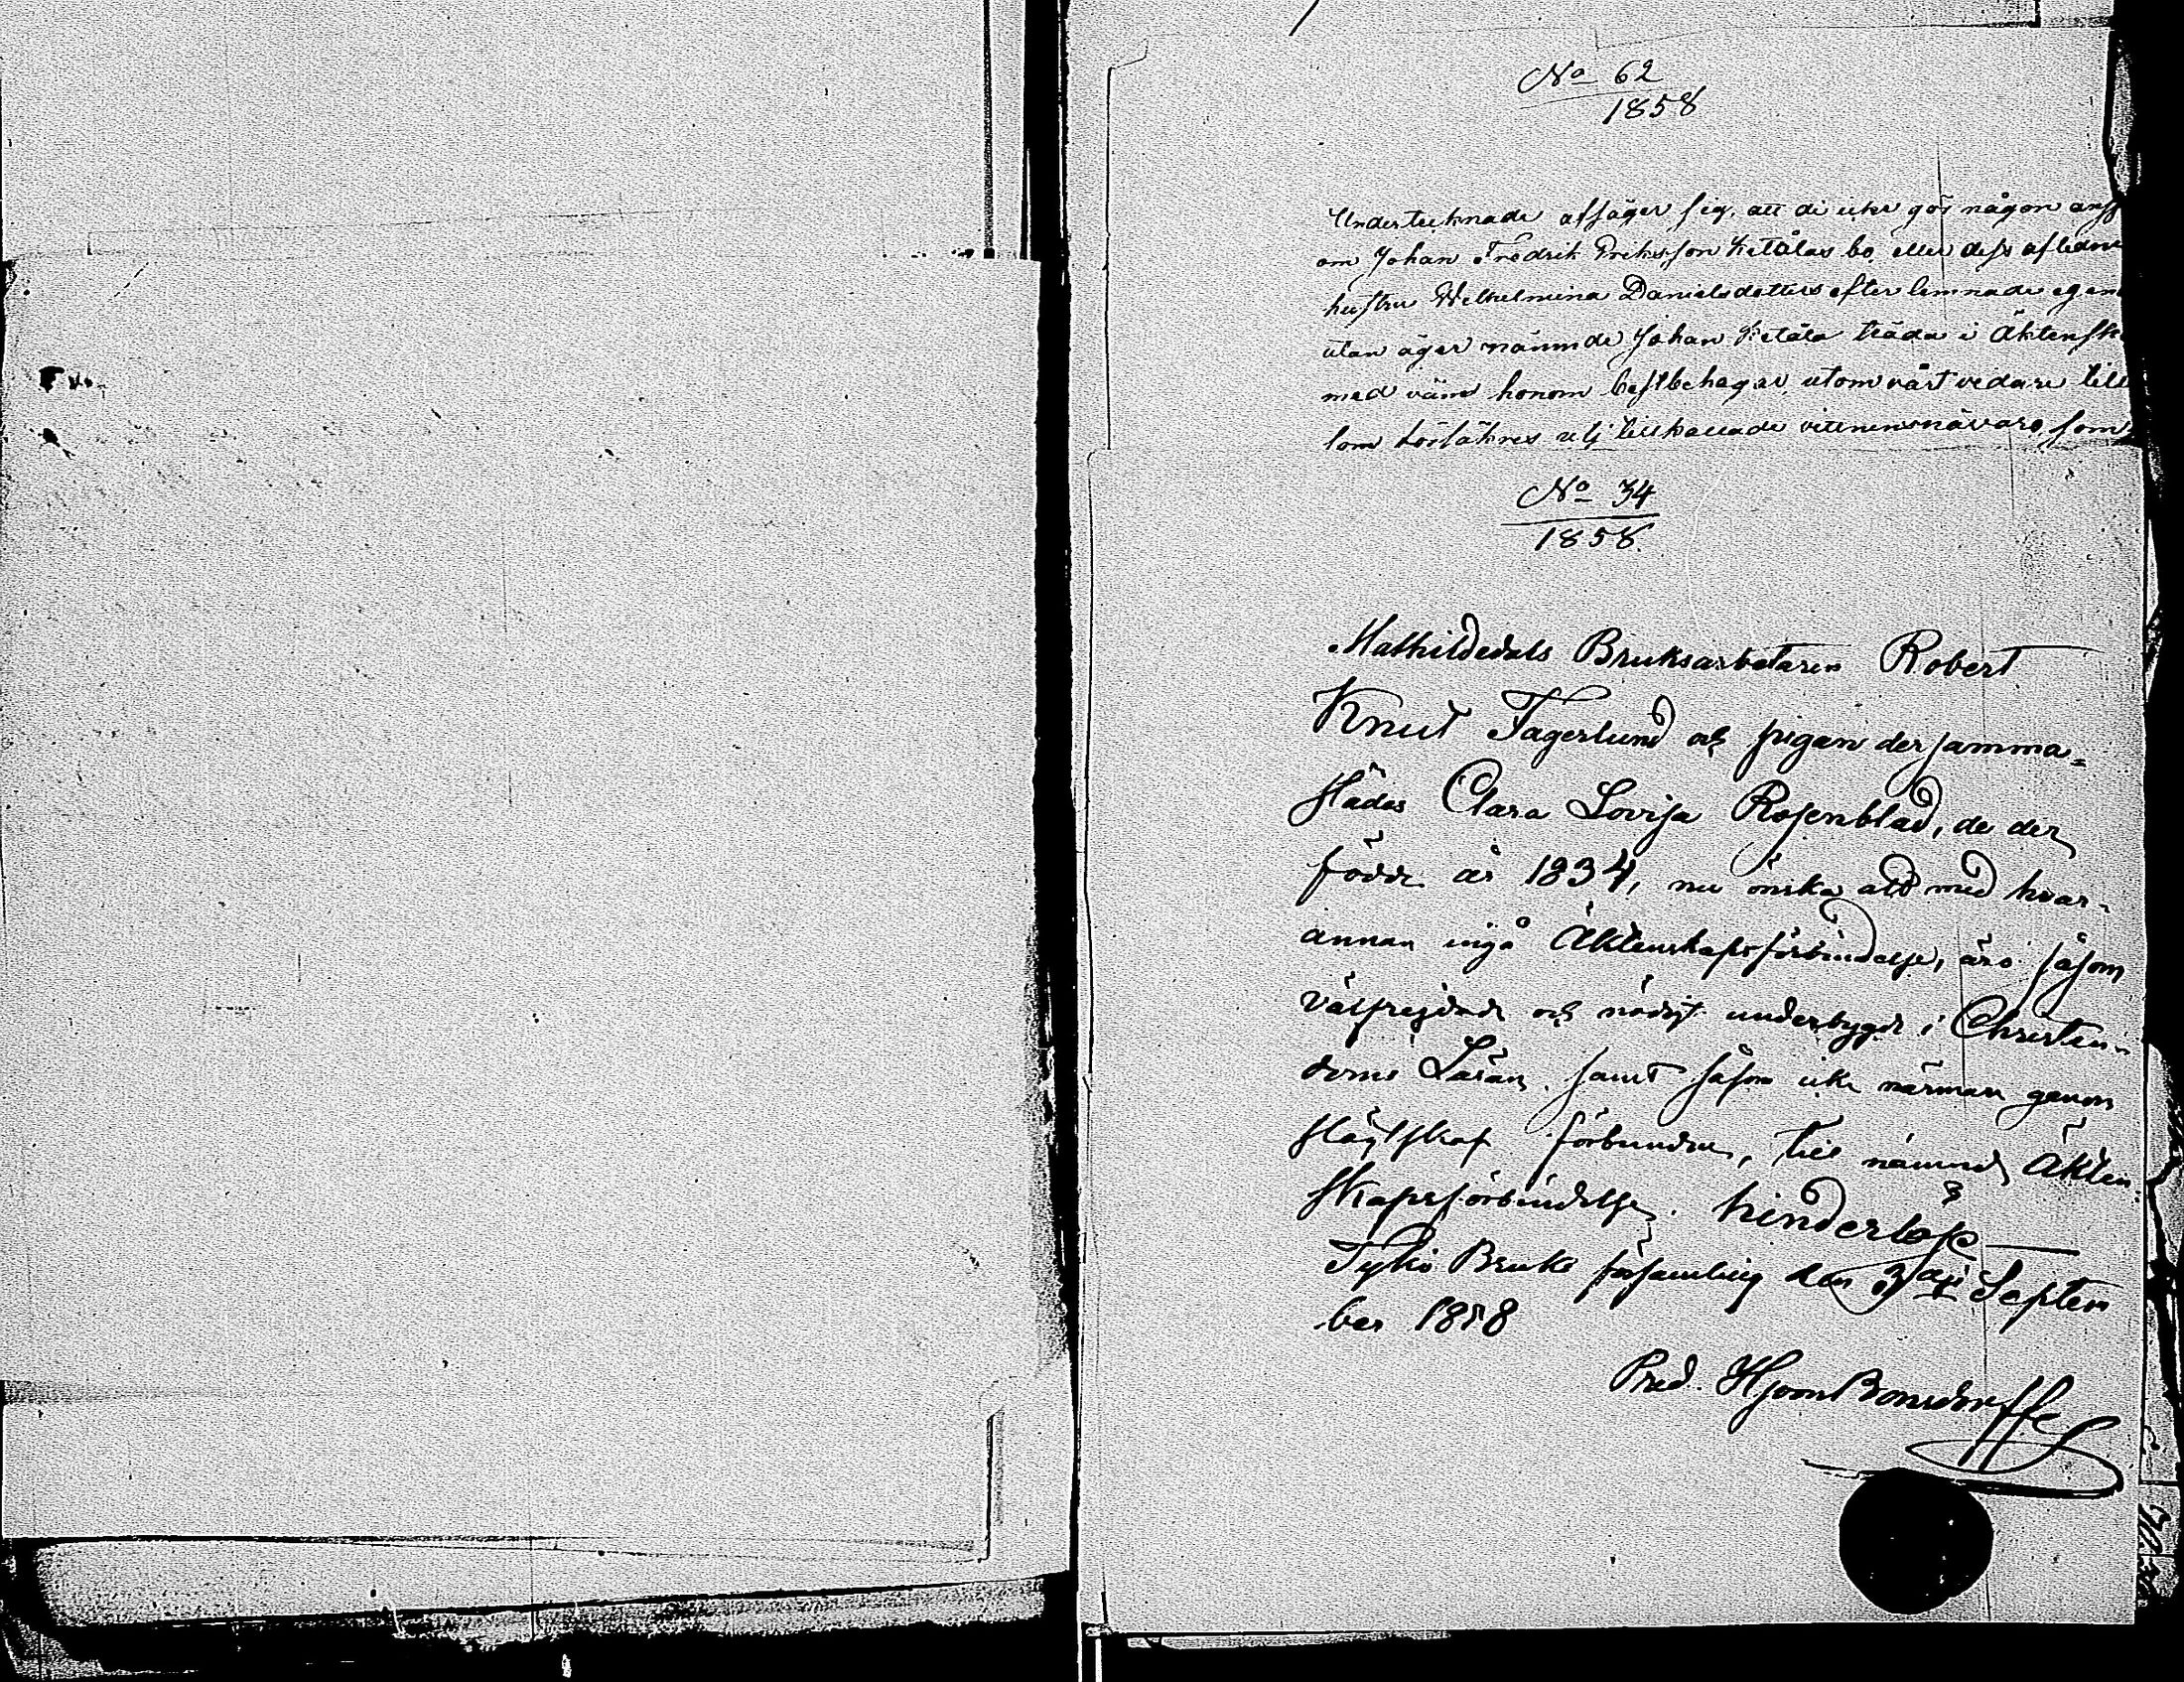 No 62
1858
Undertecknade afsäger sig, att di icke gör någon
om Johan Fredrik Eriksson Ketälas bo, eller dess afledne
hustru Wilhelmina Danielsdotters efter lemnade
utan äger nämnde Johan Ketäla träda i Äktenska
med väm honom bäst behagar, utom vårt vidare till
som försäkres uti tillkallade vittnens närvaro, som
No 34
1858.
Mathildedals Bruksarbetaren Robert
Knut Fagerlund och pigan dersamma=
städes Clara Lovisa Rosenblad, de der
födde år 1834, nu önska att med hvar-
annan ingå Äktenskapsförbindelse, äro såsom
välfrejdade och nödigt underbygde i Christen-
doms Läran, samt såsom icke närmare genom
slägtskap förbundne, till nämnde Äkten
skapsförbindelse, hinderlöse
Tykö Bruks församling den 3dje Septem
ber 1858
Pred. Hj von Bonsdorff